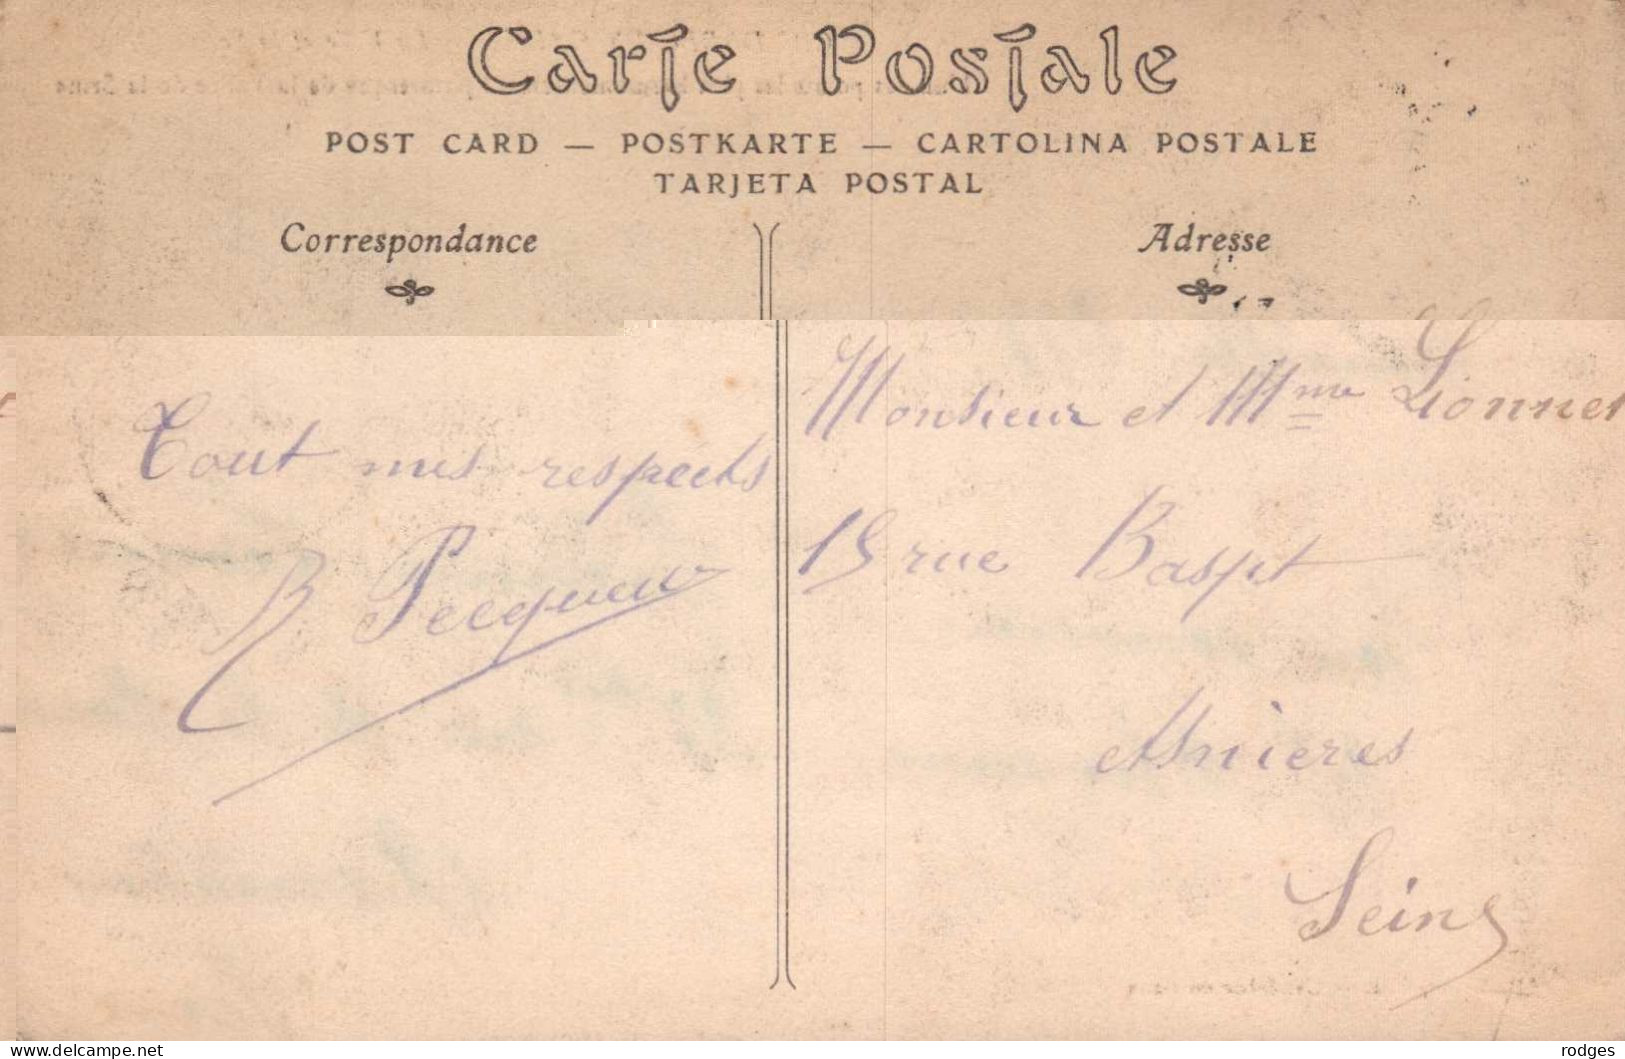 Carte Postale
POST CARD — POSTKARTE — CARTOLINA POSTALE
TARJETA POSTAL
Correspondance
Adresse
Tout mes respects
B Pecqueur
Monsieur et Mme Lionnet
15 rue Baspt
Asnieres
Seine
www.delcampe.net
rodges